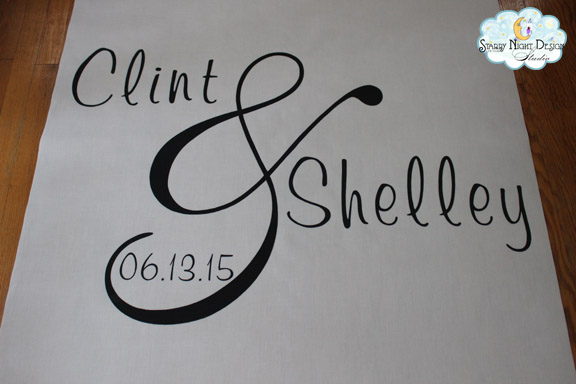 Clint
&
Shelley
06.13.15
Starry Night Design
Studio